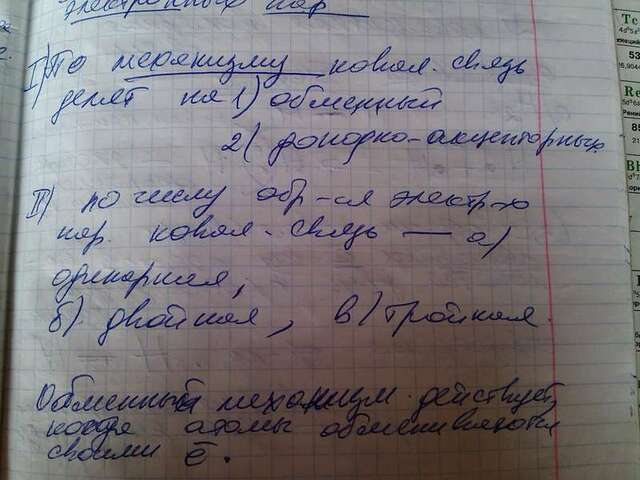 электронных пар
I) По механизму ковал. связь
делят на 1) обменный
2) донорно-акцепторных
II) по числу обр-ся электр-х
пар. ковал. связь — а)
одинарная,
б) двойная, в) тройная.
Обменный механизм действует,
когда атомы обмениваются
своими ē.
Re
Bh